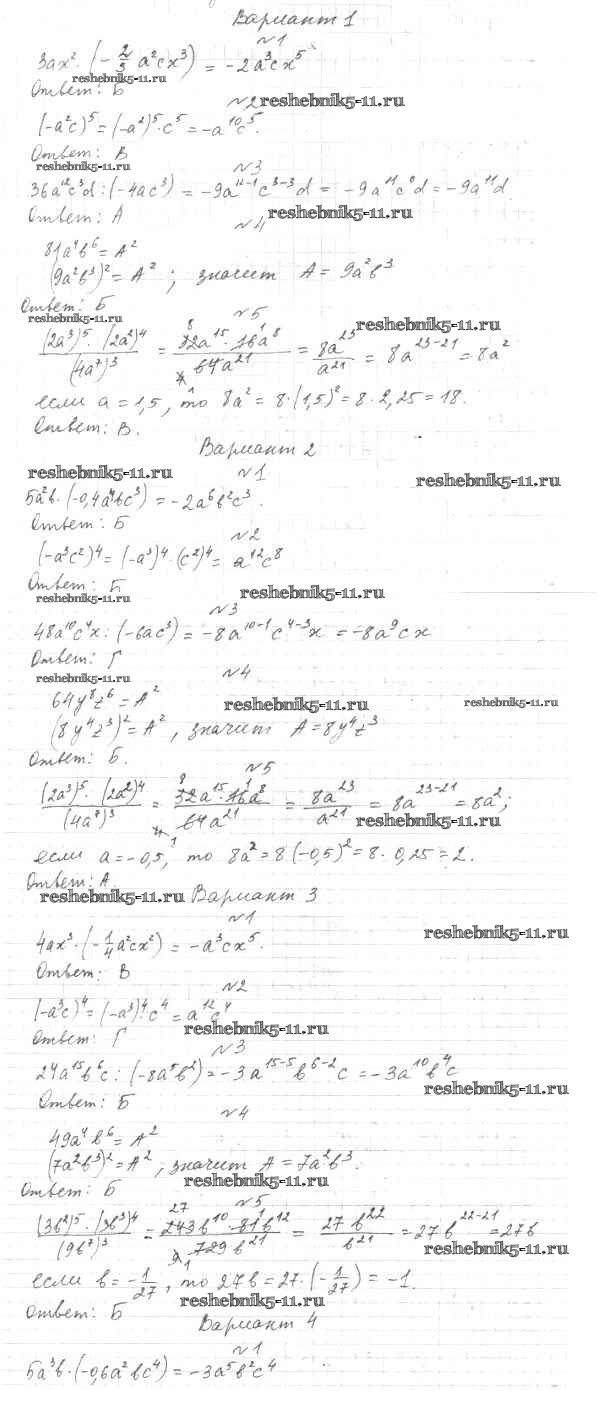 Вариант 1
№1
3ax²·(-2/3 a²cx³) = -2a³cx⁵
reshebnik5-11.ru
Ответ: Б
№2 reshebnik5-11.ru
(-a²c)⁵ = (-a²)⁵·c⁵ = -a¹⁰c⁵.
Ответ: В
reshebnik5-11.ru №3
36a¹²c³d : (-4ac³) = -9a¹²⁻¹c³⁻³d = -9a¹¹c⁰d = -9a¹¹d
Ответ: А reshebnik5-11.ru
№4
81a⁴b⁶ = A²
(9a²b³)² = A² ; значит A = 9a²b³
Ответ: Б
reshebnik5-11.ru №5 reshebnik5-11.ru
(2a³)⁵·(2a²)⁴/(4a⁷)³ = 32a¹⁵·16a⁸/64a²¹ = 8a²³/a²¹ = 8a²³⁻²¹ = 8a²
если a = 1,5, то 8a² = 8·(1,5)² = 8·2,25 = 18.
Ответ: В.
Вариант 2
reshebnik5-11.ru №1 reshebnik5-11.ru
5a²b·(-0,4a⁴bc³) = -2a⁶b²c³.
Ответ: Б
№2
(-a³c²)⁴ = (-a³)⁴·(c²)⁴ = a¹²c⁸
Ответ: Б
reshebnik5-11.ru reshebnik5-11.ru
№3
48a¹⁰c⁴x : (-6ac³) = -8a¹⁰⁻¹c⁴⁻³x = -8a⁹cx
Ответ: Г
reshebnik5-11.ru №4
64y⁸z⁶ = A² reshebnik5-11.ru reshebnik5-11.ru
(8y⁴z³)² = A², значит A = 8y⁴z³
Ответ: Б.
№5
(2a³)⁵·(2a²)⁴/(4a⁷)³ = 32a¹⁵·16a⁸/64a²¹ = 8a²³/a²¹ = 8a²³⁻²¹ = 8a²;
reshebnik5-11.ru
если a = -0,5, то 8a² = 8(-0,5)² = 8·0,25 = 2.
Ответ: А
reshebnik5-11.ru Вариант 3
№1 reshebnik5-11.ru
4ax³·(-1/4 a²cx²) = -a³cx⁵.
Ответ: В
№2
(-a³c)⁴ = (-a³)⁴·c⁴ = a¹²c⁴
Ответ: Г reshebnik5-11.ru
№3
24a¹⁵b⁶c : (-8a⁵b²) = -3a¹⁵⁻⁵b⁶⁻²c = -3a¹⁰b⁴c
reshebnik5-11.ru
Ответ: Б
№4
49a⁴b⁶ = A²
(7a²b³)² = A², значит A = 7a²b³.
reshebnik5-11.ru
Ответ: Б
№5
(3b²)⁵·(3b³)⁴/(9b⁷)³ = 243b¹⁰·81b¹²/729b²¹ = 27b²²/b²¹ = 27b²²⁻²¹ = 27b
reshebnik5-11.ru
если b = -1/27, то 27b = 27·(-1/27) = -1.
reshebnik5-11.ru
Ответ: Б
Вариант 4
№1
5a³b·(-0,6a²bc⁴) = -3a⁵b²c⁴